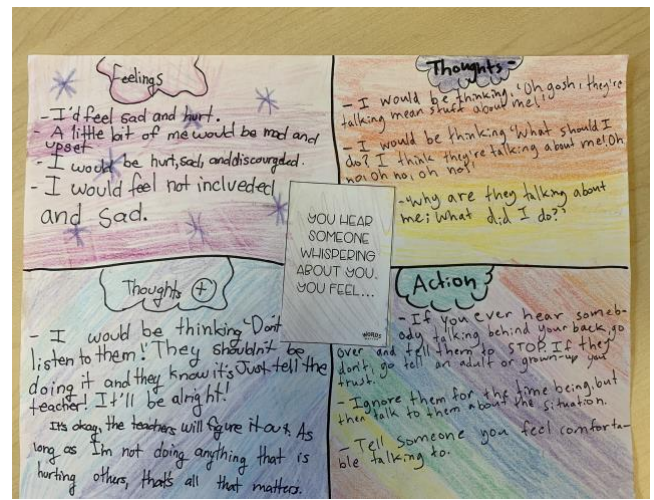 Feelings
- I'd feel sad and hurt.
- A little bit of me would be mad and
upset
- I would be hurt, sad, and discouraged.
- I would feel not inclueded
and sad.
Thoughts -
- I would be thinking, 'Oh gosh, they're
talking mean stuff about me!'
- I would be thinking 'What should I
do? I think they're talking about me! Oh
no, oh no, oh no!'
- 'Why are they talking about
me; What did I do??'
YOU HEAR
SOMEONE
WHISPERING
ABOUT YOU.
YOU FEEL...
WORDS
Thoughts +
- I would be thinking 'Don't
listen to them!' They shouldn't be
doing it and they know it's Just tell the
teacher! It'll be alright!
It's okay, the teachers will figure it out. As
long as I'm not doing anything that is
hurting others, that's all that matters.
Action
- If you ever hear someb-
ody talking behind your back, go
over and tell them to STOP If they
don't, go tell an adult or grown-up you
trust.
- Ignore them for the time being, but
then talk to them about the situation.
- Tell someone you feel comforta-
ble talking to.